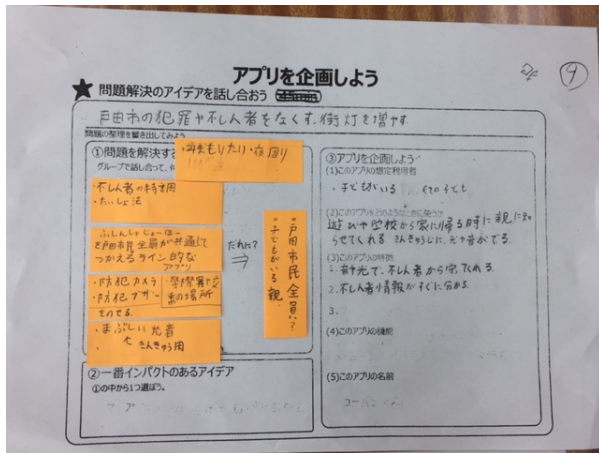 アプリを企画しよう
2f
9
★ 問題解決のアイデアを話し合おう
戸田市の犯罪や不しん者をなくす。街灯を増やす。
問題の整理を書き出してみよう
①問題を解決する
グループで話し合って、
・見まもりたり・夜回り
・不しん者の特ちょう
・たいしょ法
ふしんしゃじょーほー
を戸田市民全員が共通して
つかえるライン的な
アプリ
・防犯カメラ
・防犯ブザー
警察署や交番の場所
をのせる。
・まぶしい光音
きんきゅう用
だれに?
⇒
・戸田市民全員?
・子どもがいる親
②一番インパクトのあるアイデア
①の中から1つ選ぼう。
③アプリを企画しよう
(1)このアプリの想定利用者
・子どもがいる
(2)このアプリをどのようなときに使うか
遊びや学校から家に帰る時に親に知
らせてくれる。きんきゅうじに、光や音がでる。
(3)このアプリの特徴
1. 音や光で、不しん者から守ってくれる。
2. 不しん者情報がすぐに分かる。
3.
(4)このアプリの機能
(5)このアプリの名前